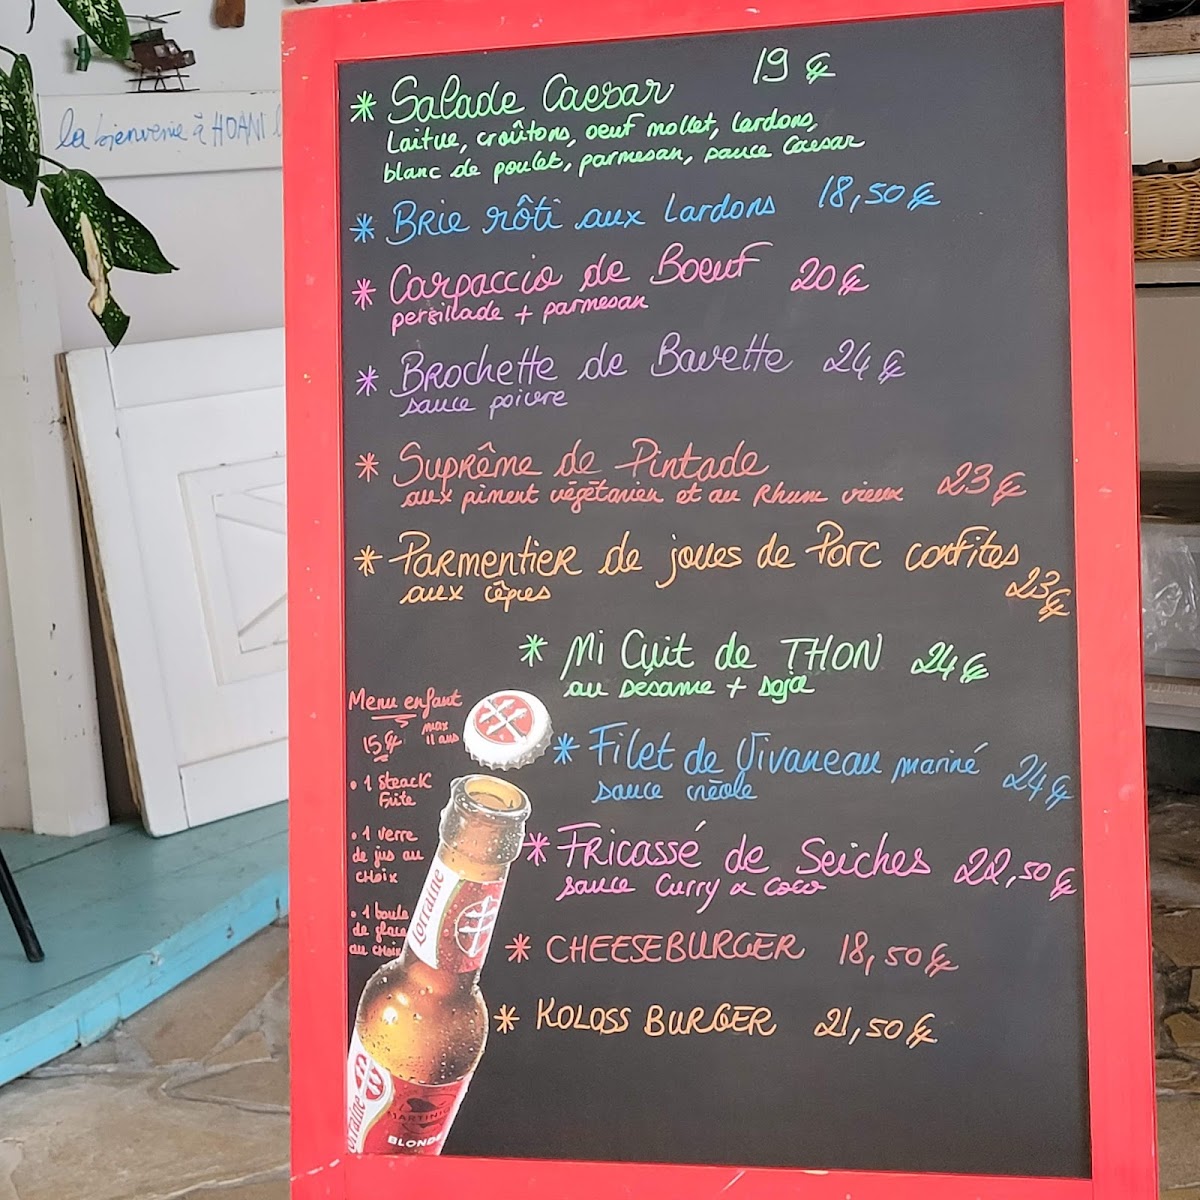 la bienvenie à HOANI
* Salade Caesar 19 €
Laitue, croûtons, oeuf mollet, lardons,
blanc de poulet, parmesan, sauce Caesar
* Brie rôti aux Lardons 18,50 €
* Carpaccio de Boeuf 20 €
persillade + parmesan
* Brochette de Bavette 24 €
sauce poivre
* Suprême de Pintade
aux piment végétarien et au Rhum vieux 23 €
* Parmentier de joues de Porc confites
aux cêpes 23 €
* Mi Cuit de THON 24 €
au sésame + soja
* Filet de Vivaneau mariné 24 €
sauce créole
* Fricassé de Seiches 22,50 €
sauce Curry & coco
* CHEESEBURGER 18,50 €
* KOLOSS BURGER 21,50 €
Menu enfant
15 € max
11 ans
• 1 Steack
Frite
• 1 verre
de jus au
choix
• 1 boule
de glace
au choix
Lorraine
Lorraine
MARTINIQUE
BLONDE